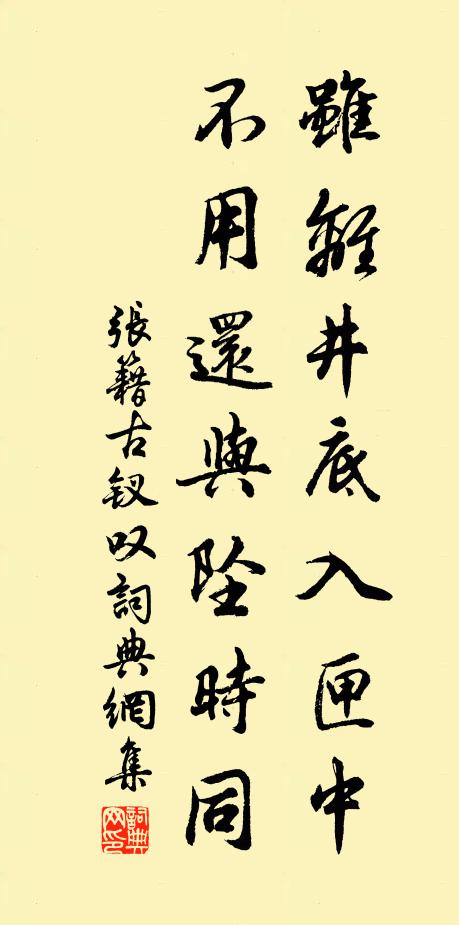 雖離井底入匣中
不用還與墜時同
張籍古釵叹詞典網集
詞典网印